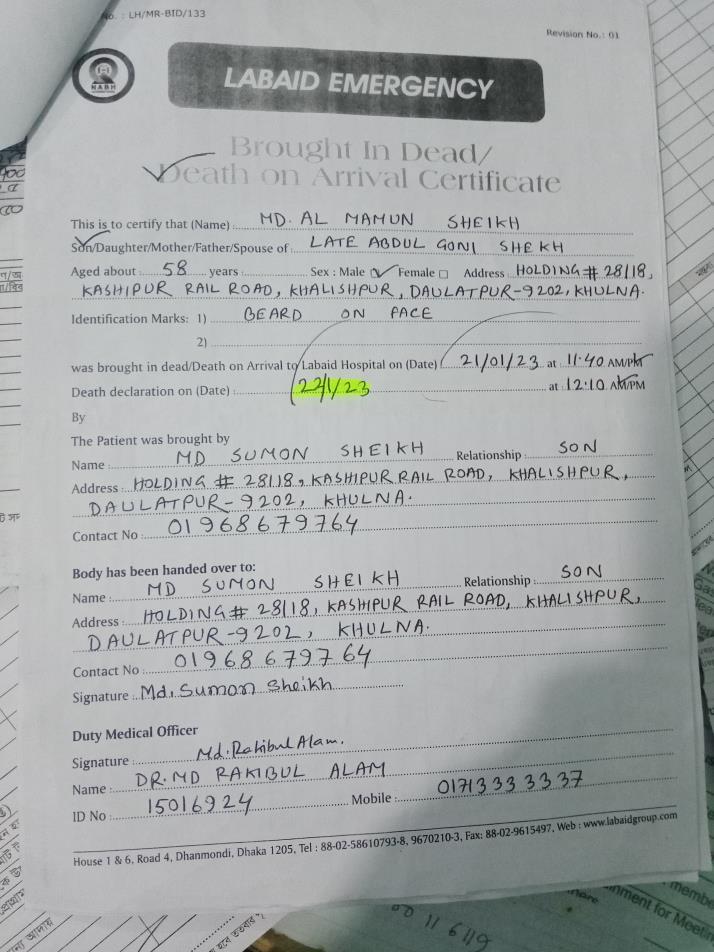 No. : LH/MR-BID/133
Revision No.: 01
NABH
LABAID EMERGENCY
Brought In Dead/
Death on Arrival Certificate
This is to certify that (Name) : MD. AL MAMUN SHEIKH
Son/Daughter/Mother/Father/Spouse of : LATE ABDUL GONI SHEKH
Aged about : 58 years : Sex : Male Female Address : HOLDING # 28/18,
KASHIPUR RAIL ROAD, KHALISHPUR, DAULATPUR-9202, KHULNA.
Identification Marks: 1) BEARD ON PACE
2)
was brought in dead/Death on Arrival to Labaid Hospital on (Date) 21/01/23 at 11:40 AM/PM
Death declaration on (Date) : 22/1/23 at 12:10 AM/PM
By
The Patient was brought by
Name : MD SUMON SHEIKH Relationship : SON
Address : HOLDING # 28/18, KASHIPUR RAIL ROAD, KHALISHPUR,
DAULATPUR-9202, KHULNA.
Contact No : 01968679764
Body has been handed over to:
Name : MD SUMON SHEIKH Relationship : SON
Address : HOLDING # 28/18, KASHIPUR RAIL ROAD, KHALISHPUR,
DAULATPUR-9202, KHULNA.
Contact No : 01968679764
Signature : Md. Sumon Sheikh
Duty Medical Officer
Signature : Md. Rakibul Alam.
Name : DR. MD RAKIBUL ALAM
ID No : 15016924 Mobile : 01713333337
House 1 & 6, Road 4, Dhanmondi, Dhaka 1205, Tel : 88-02-58610793-8, 9670210-3, Fax: 88-02-9615497, Web : www.labaidgroup.com
00 11 6119